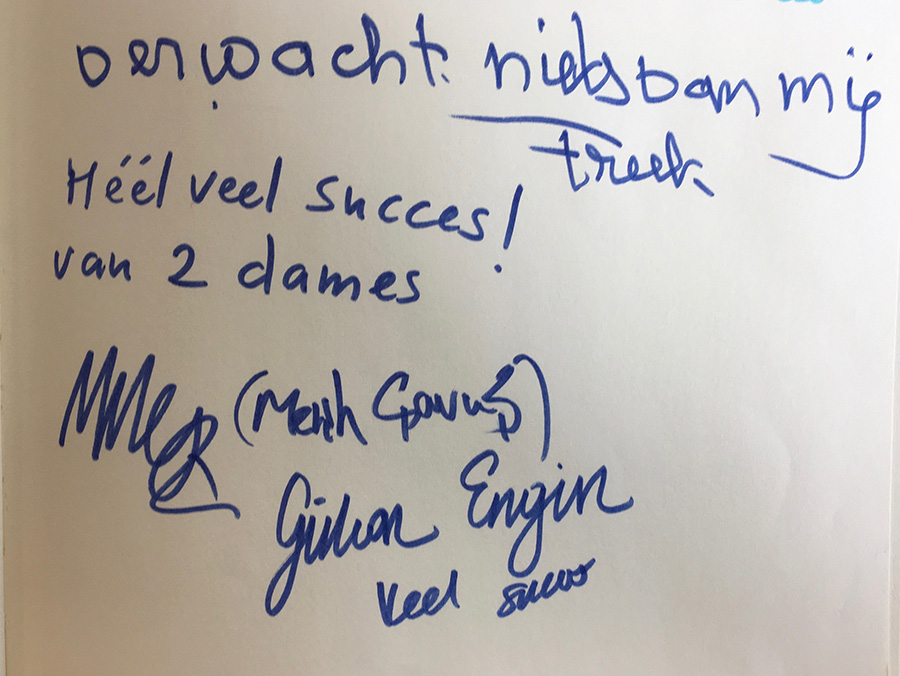 verwacht niets van mij
treck
Héél veel succes!
van 2 dames
(Melih Çavuş)
Gürkan Engin
Veel succes